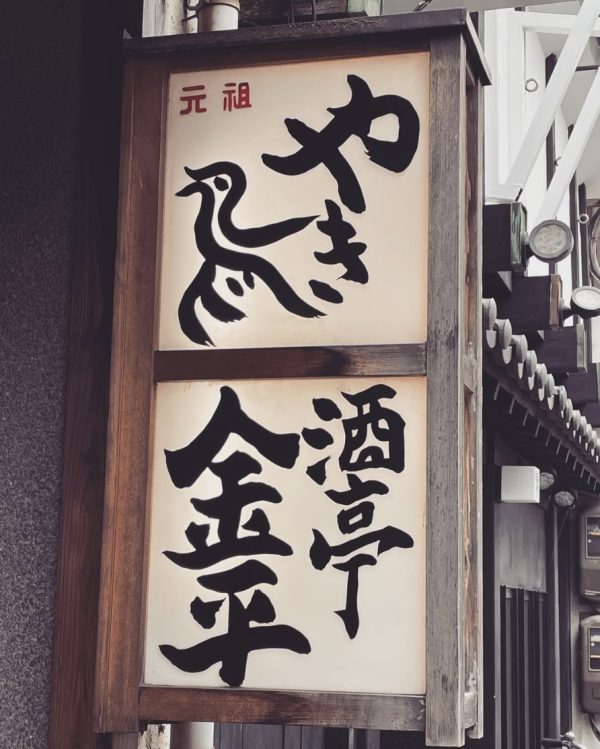 元祖
やき鳥
酒亭
金平